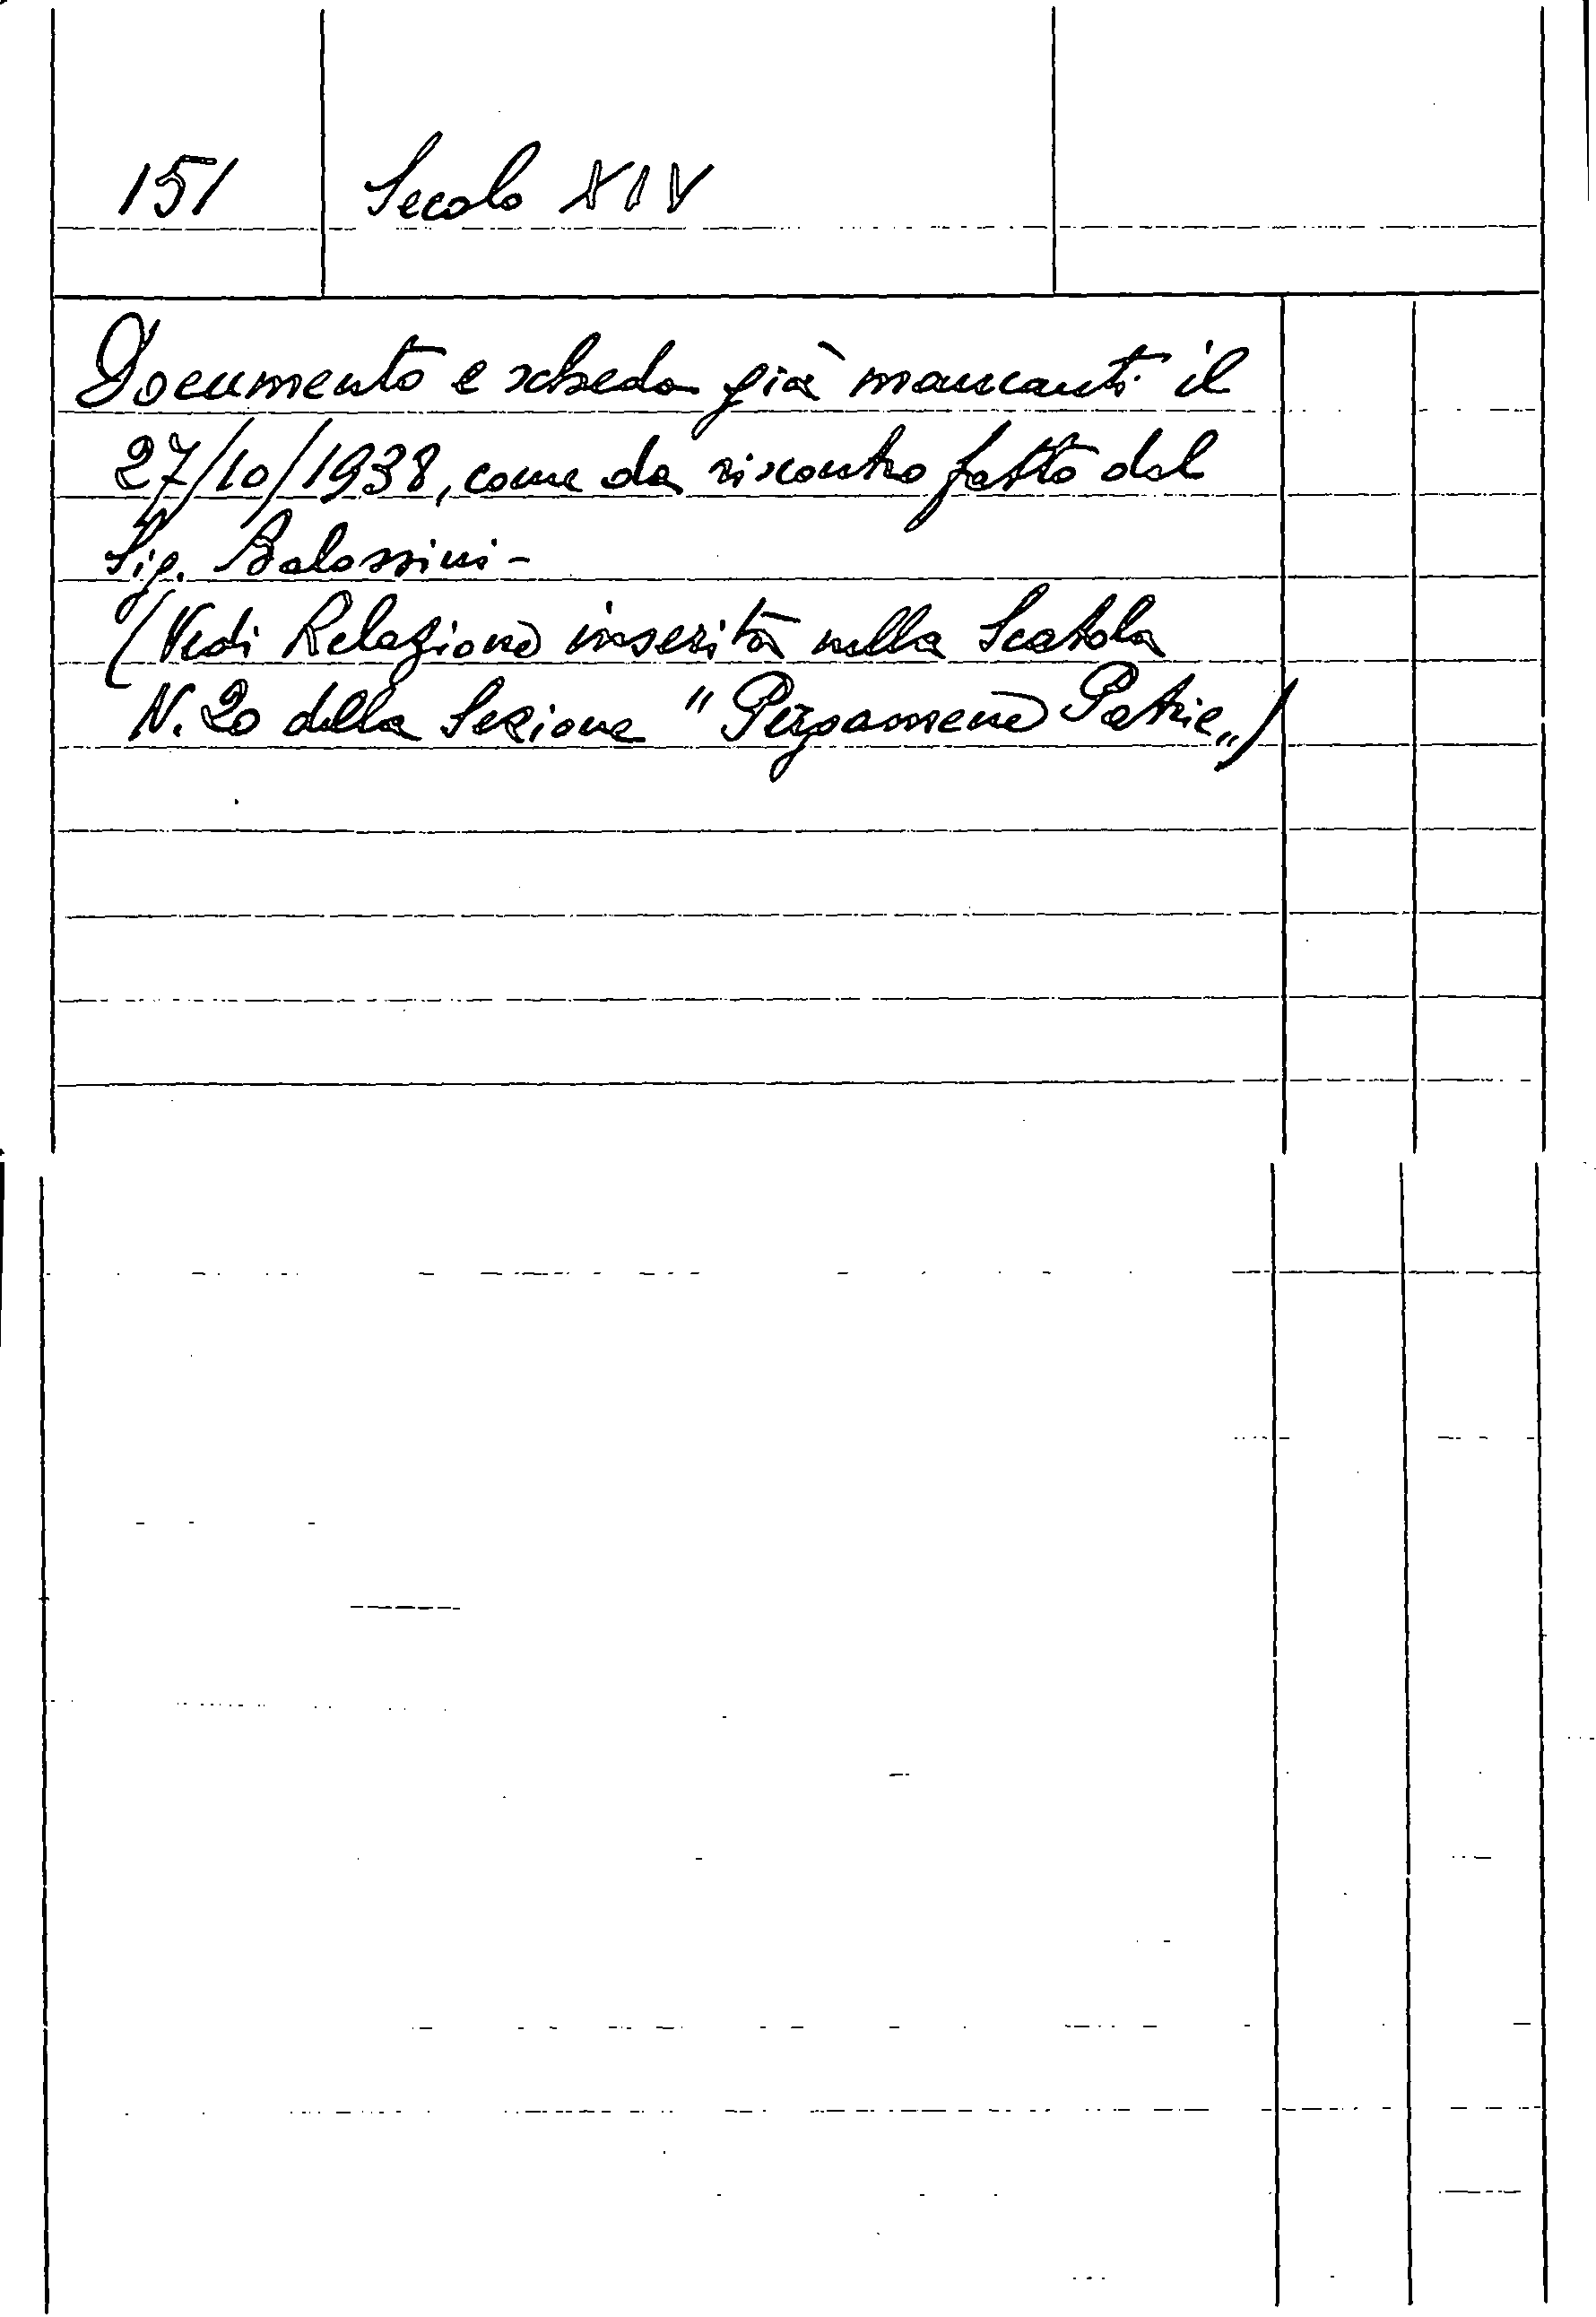 151 Secolo XIV
Documento e scheda già mancanti il
27/10/1938, come da riscontro fatto dal
Sig. Balossini -
(Vedi Relazione inserita nella Scatola
N. 20 della Sezione "Pergamene Patrie")